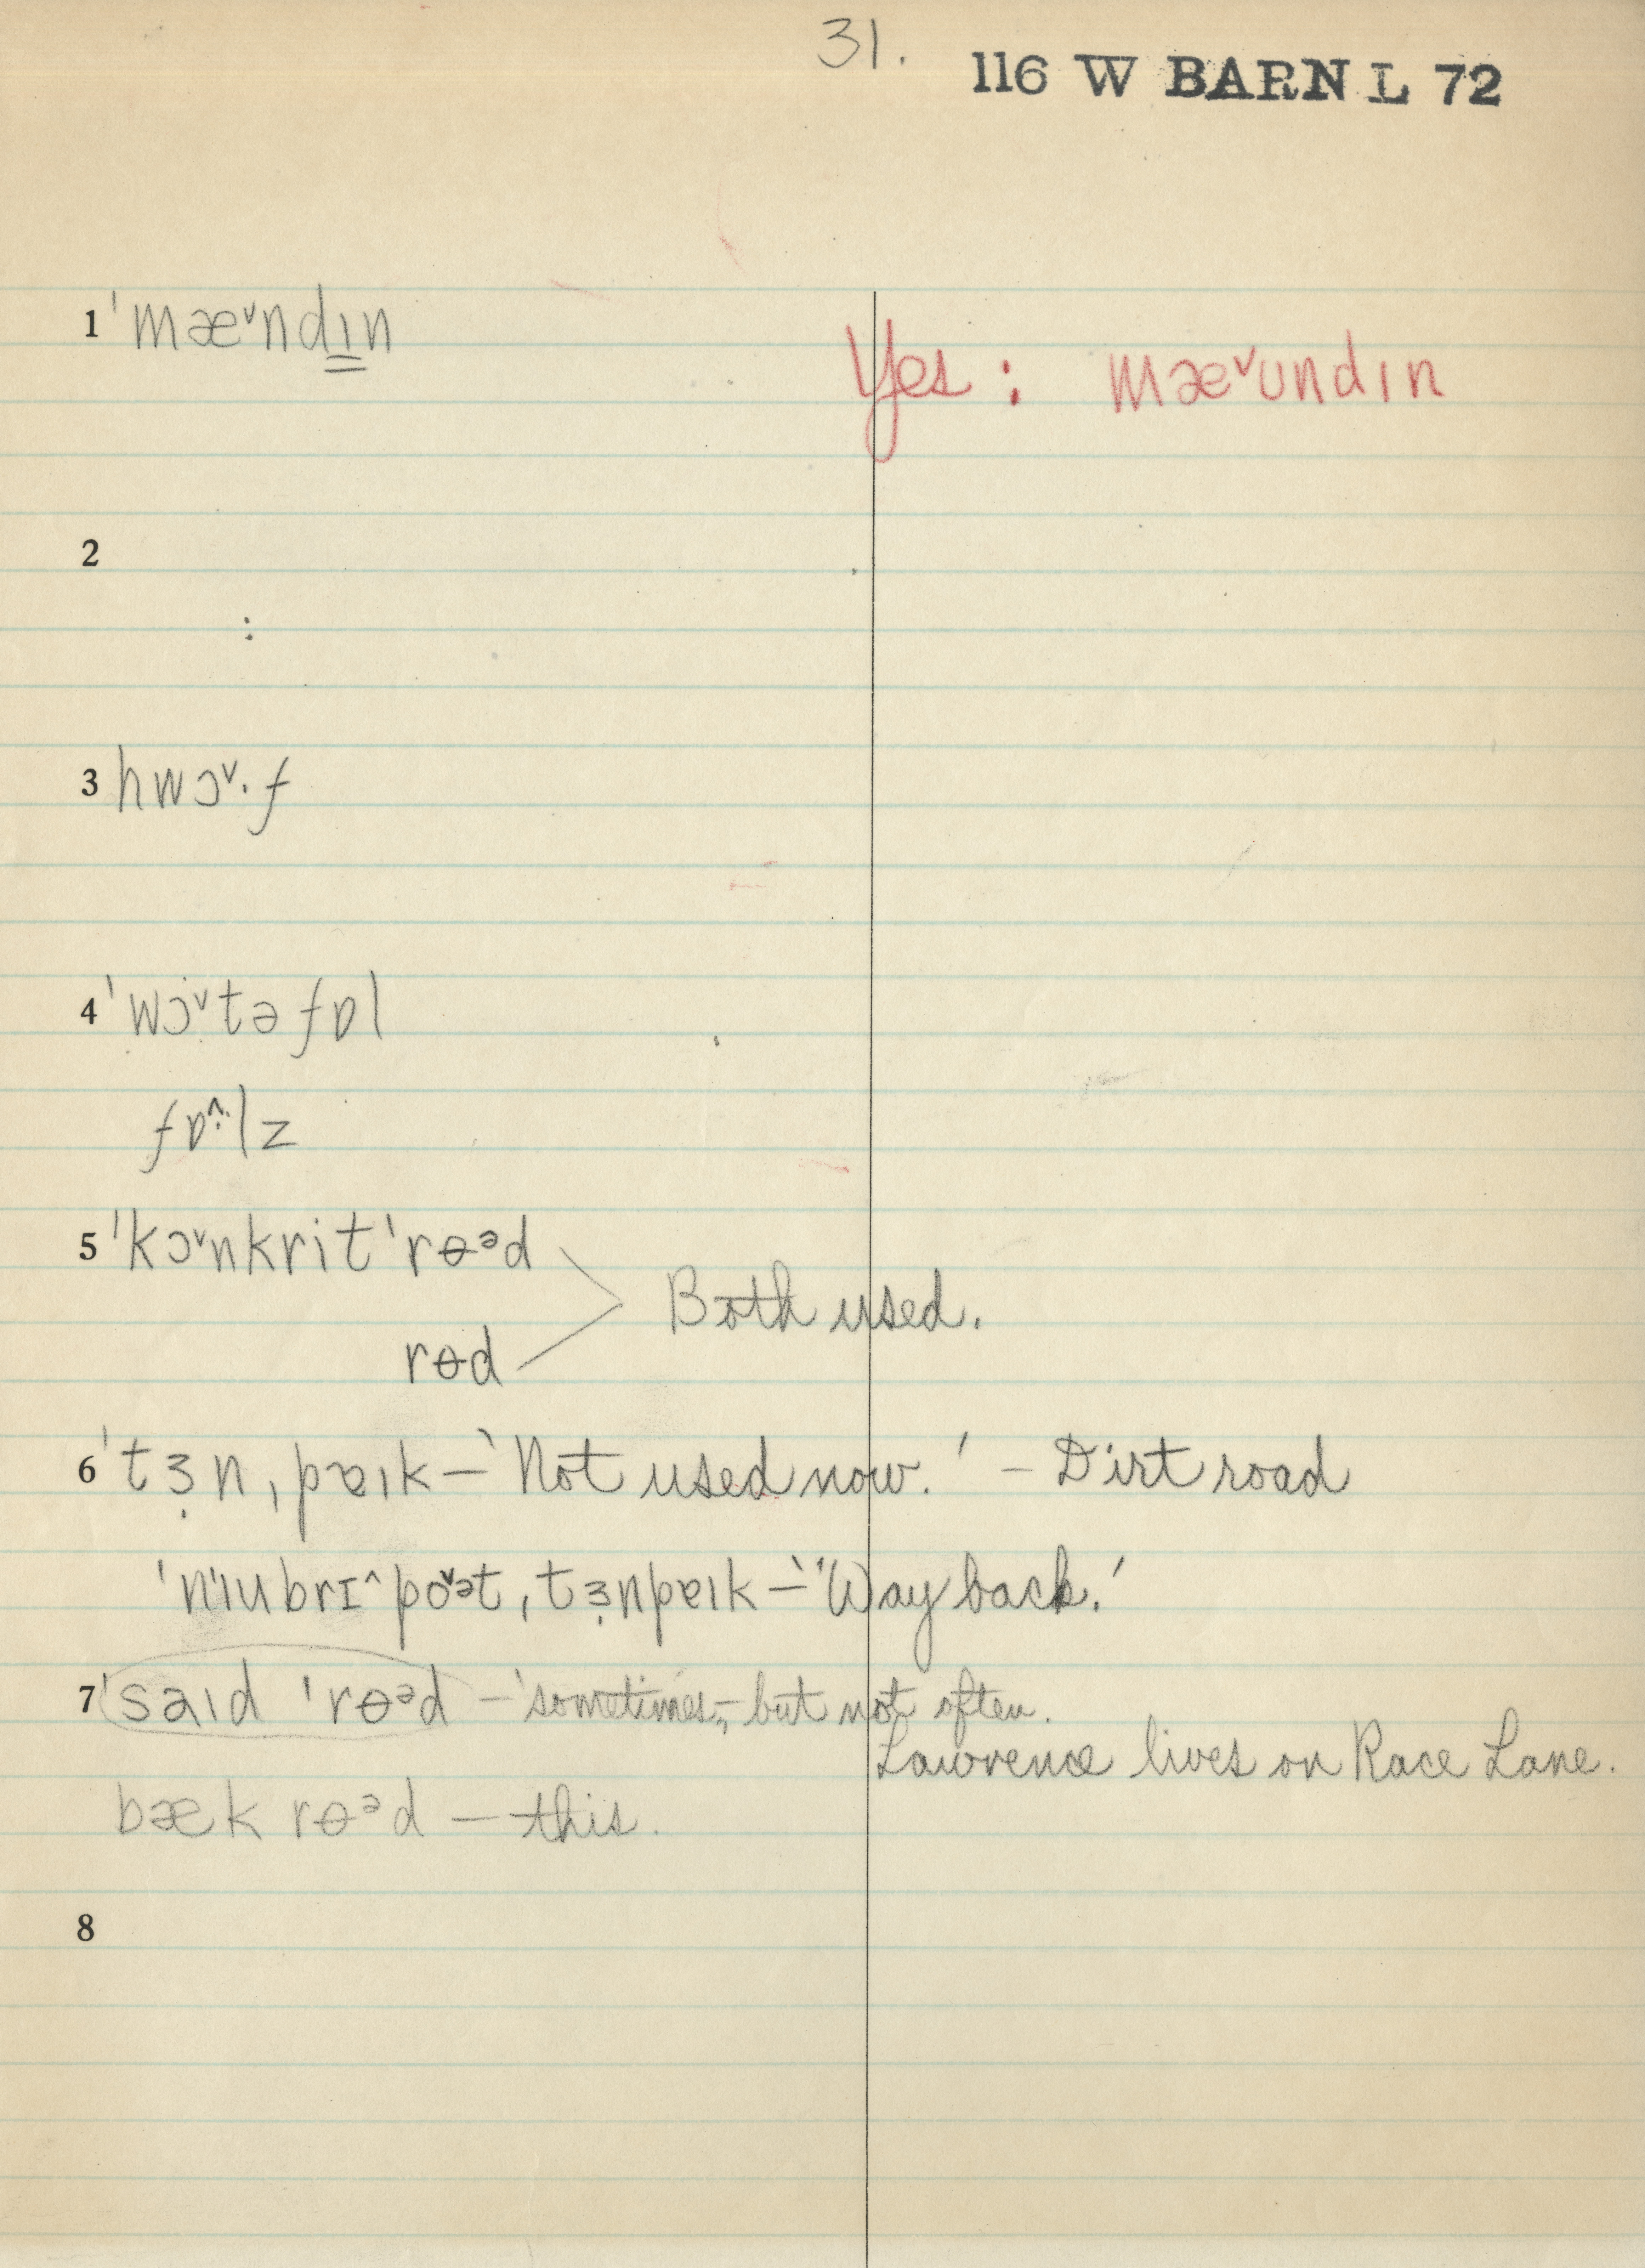 31.
116 W BARN L 72
1 ˈmæ˅ndɪn
Yes : mæ˅undɪn
2
3 hwɔ˅·f
4 ˈwɔ˅təfɒl
fɒ^·lz
5 ˈkɔ˅nkrit ˈrɵᵊd
Both used.
rɵd
6 ˈtɜ̣n ˌpɐɪk – 'Not used now.' – Dirt road
ˈnɪubrɪ^ po˅ət ˌtɜ̣npɐɪk – ''Way back.'
7 ˈsaɪd ˈrɵᵊd – 'sometimes,' – but not often.
Lawrence lives on Race Lane.
bæk rɵᵊd – this.
8